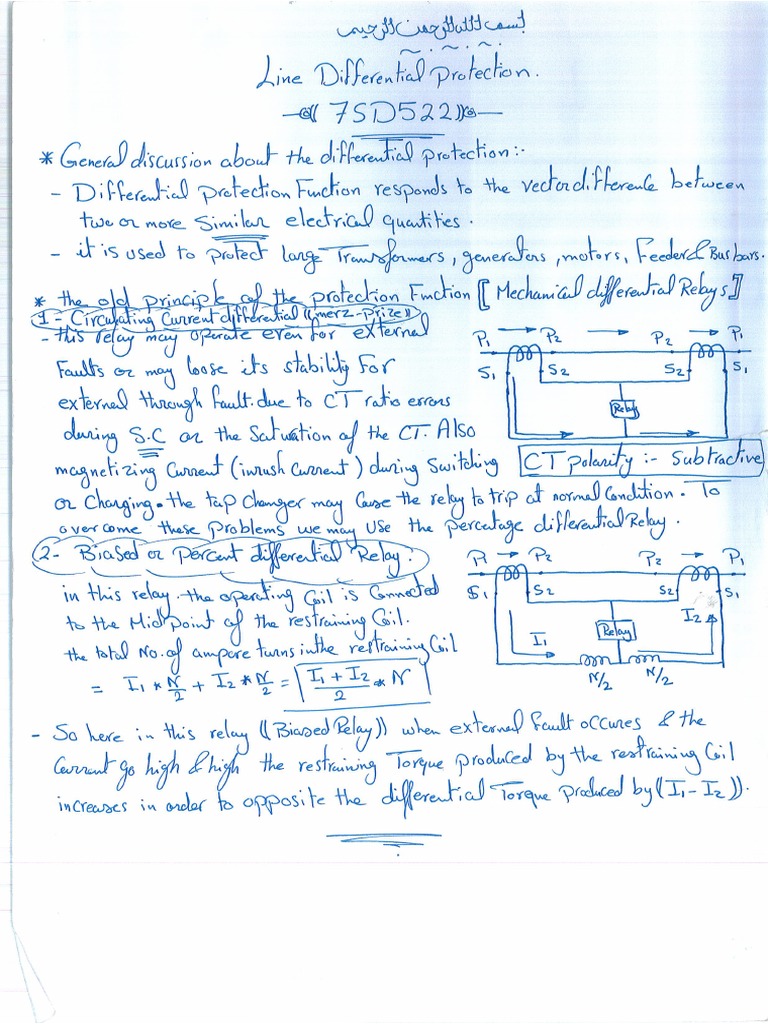 بسم الله الرحمن الرحيم
Line Differential Protection.
(( 7SD522 ))
* General discussion about the differential protection:-
- Differential protection Function responds to the vector difference between
two or more Similar electrical quantities.
- it is used to protect large Transformers, generators, motors, Feeder & Bus bars.
* the old principle of the protection Function [ Mechanical differential Relays ]
1- Circulating Current differential ((merz-Prize))
- this relay may operate even for external
Faults or may loose its stability For
external through fault. due to CT ratio errors
during S.C or the Saturation of the CT. Also
magnetizing Current (inrush Current) during Switching
or Charging. the tap changer may Cause the relay to trip at normal Condition. To
over come these problems we may use the percentage differential Relay.
P1 P2 P2 P1
S1 S2 S2 S1
Relay
CT polarity :- Subtractive
2- Biased or Percent differential Relay:
in this relay the operating Coil is Connected
to the Mid Point of the restraining Coil.
the total No. of ampere turns in the restraining Coil
= I1 * N/2 + I2 * N/2 = (I1 + I2)/2 * N
P1 P2 P2 P1
S1 S2 S2 S1
I1 Relay I2
N/2 N/2
- So here in this relay ((Biased Relay)) when external fault occures & the
Current go high & high the restraining Torque produced by the restraining Coil
increases in order to opposite the differential Torque Produced by (I1 - I2)).